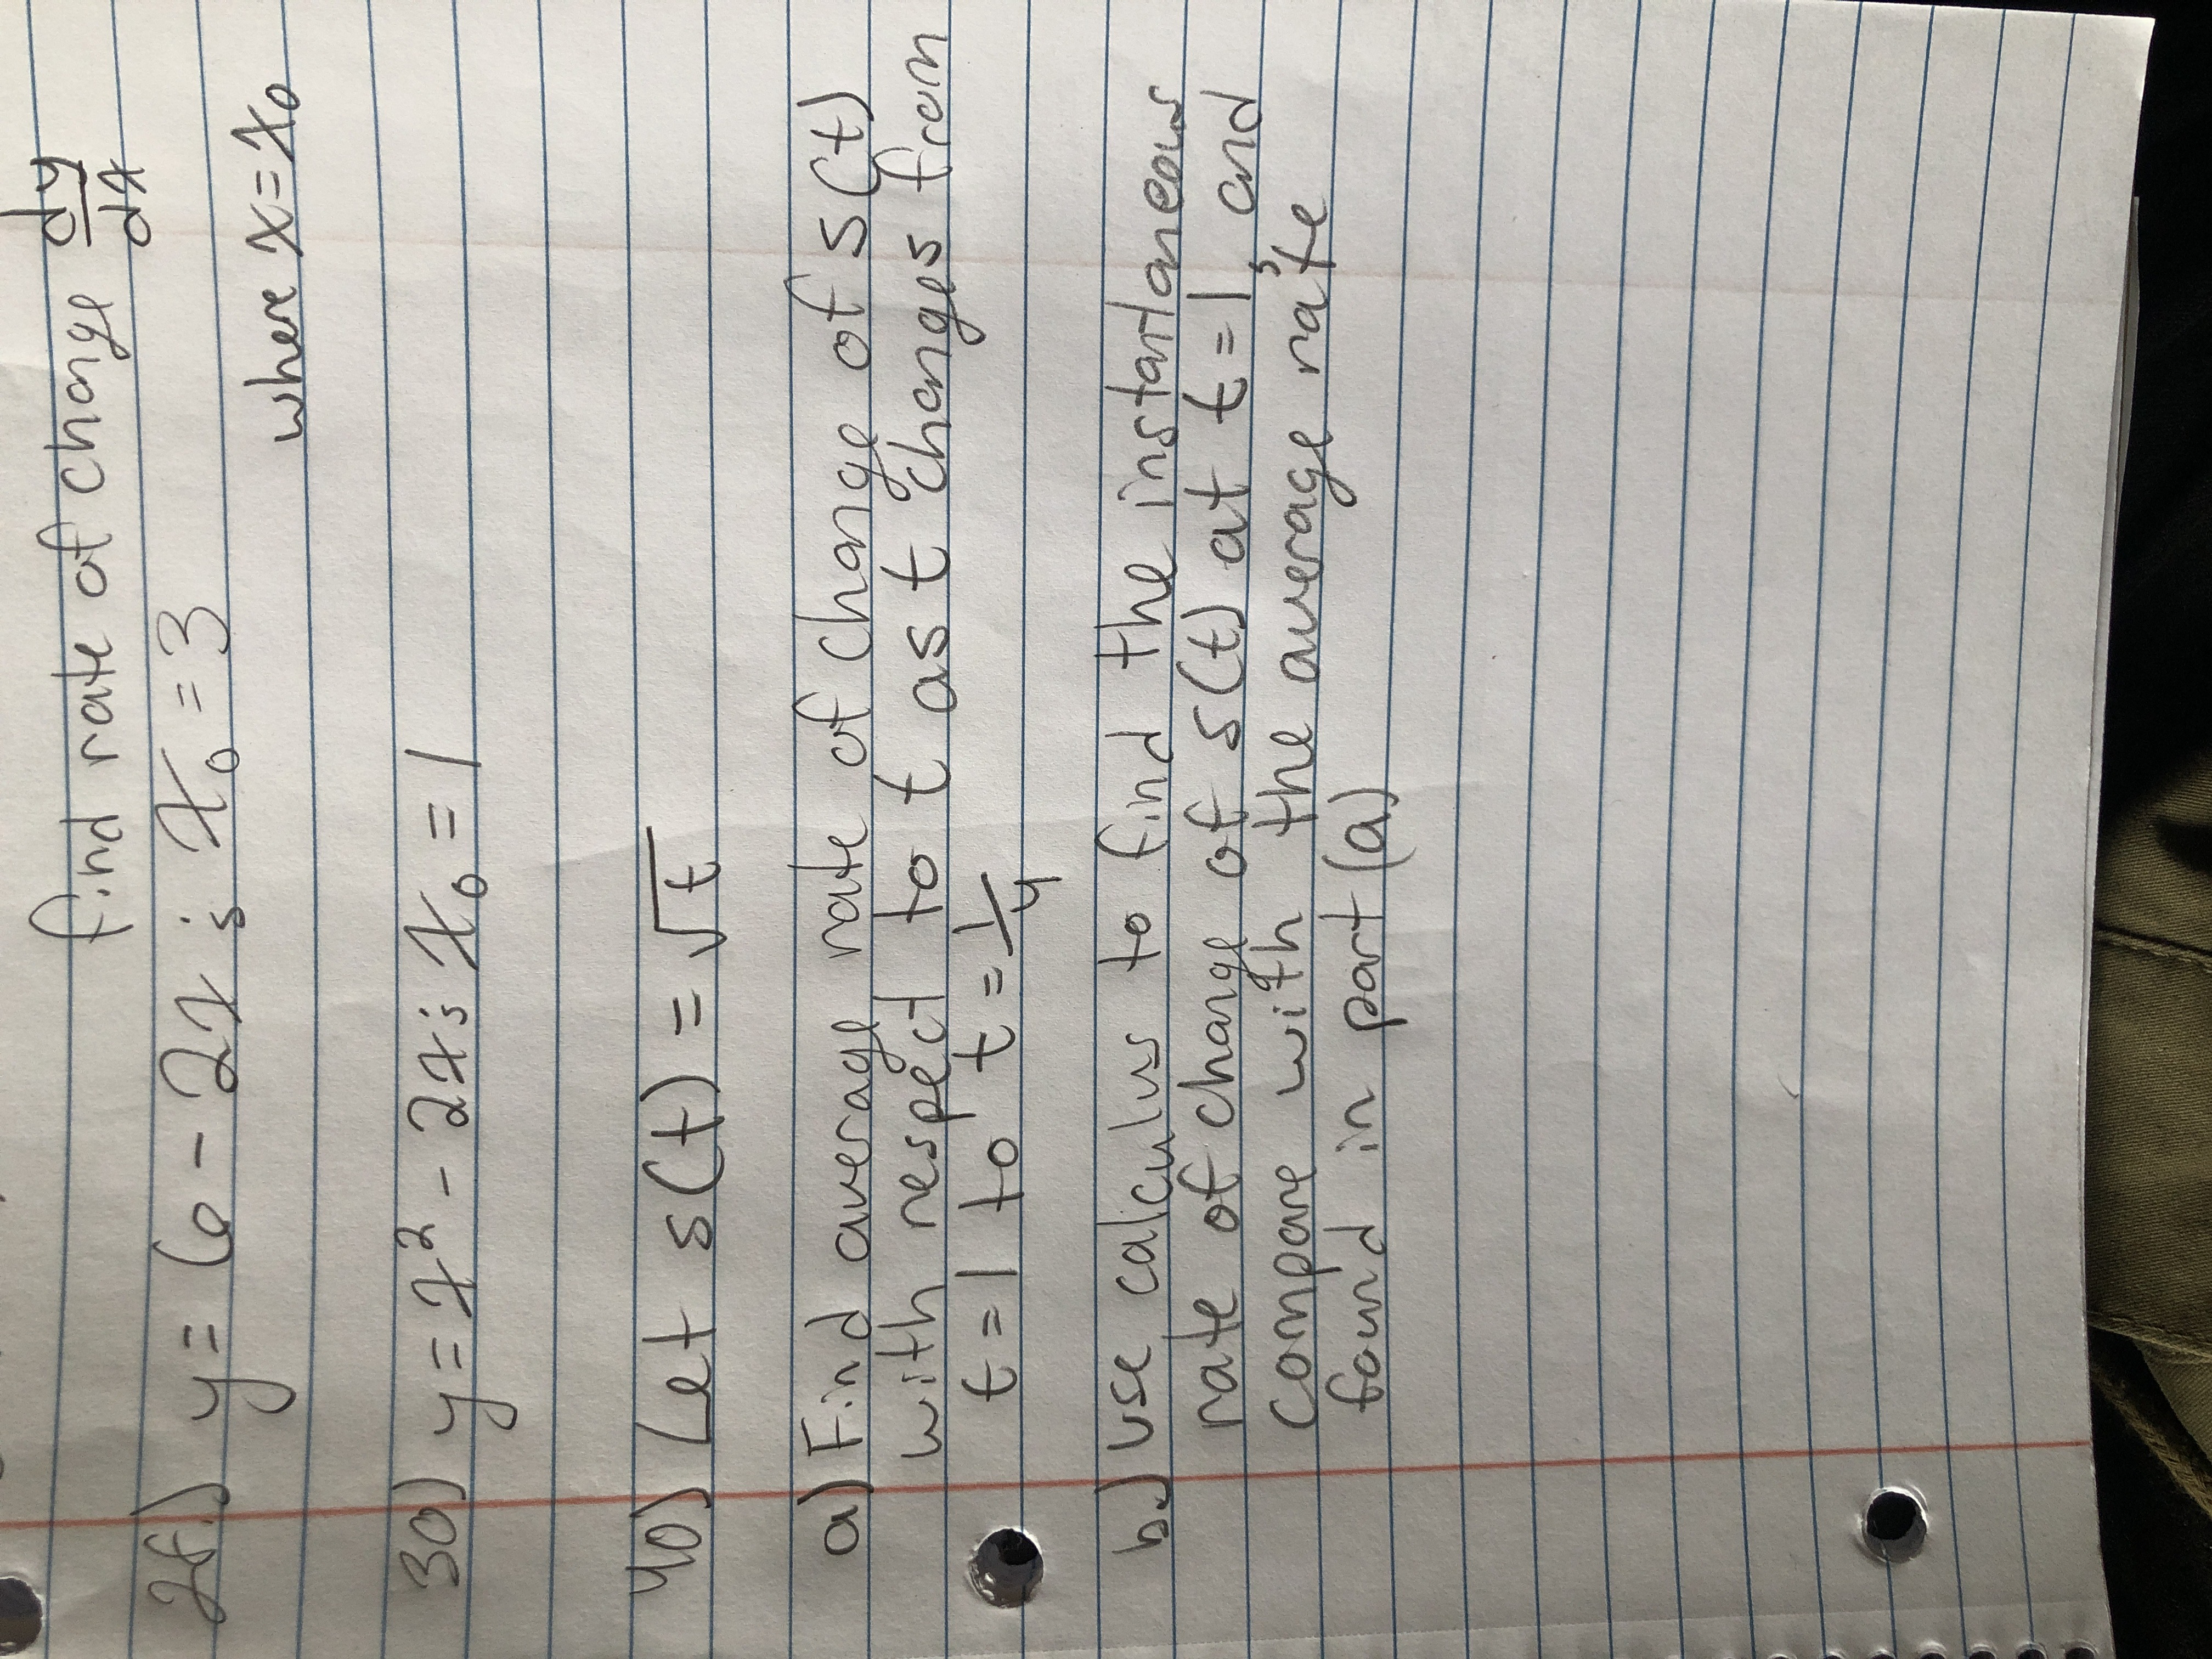 find rate of change dy/dx
28.) y = 6 - 2x ; x₀ = 3
where x = x₀
30) y = x² - 2x ; x₀ = 1
40) Let s(t) = √t
a) Find average rate of change of s(t)
with respect to t as t changes from
t = 1 to t = 1/4
b.) use calculus to find the instantaneous
rate of change of s(t) at t = 1, and
compare with the average rate
found in part (a)